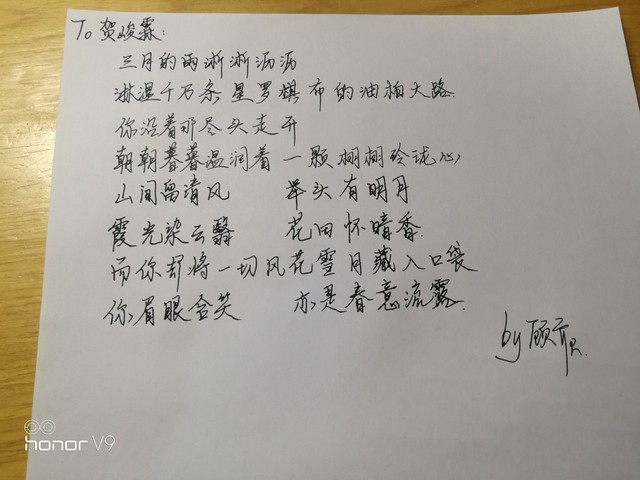 To 贺峻霖:
三月的雨淅淅沥沥
淋湿千万条星罗棋布的油柏大路.
你沿着那尽头走开
朝朝暮暮温润着一颗栩栩玲珑心
山间留清风 举头有明月
霞光染云翳 花田怀暗香.
而你却将一切风花雪月藏入口袋
你眉眼含笑 亦是春意流露.
by 顾
honor V9